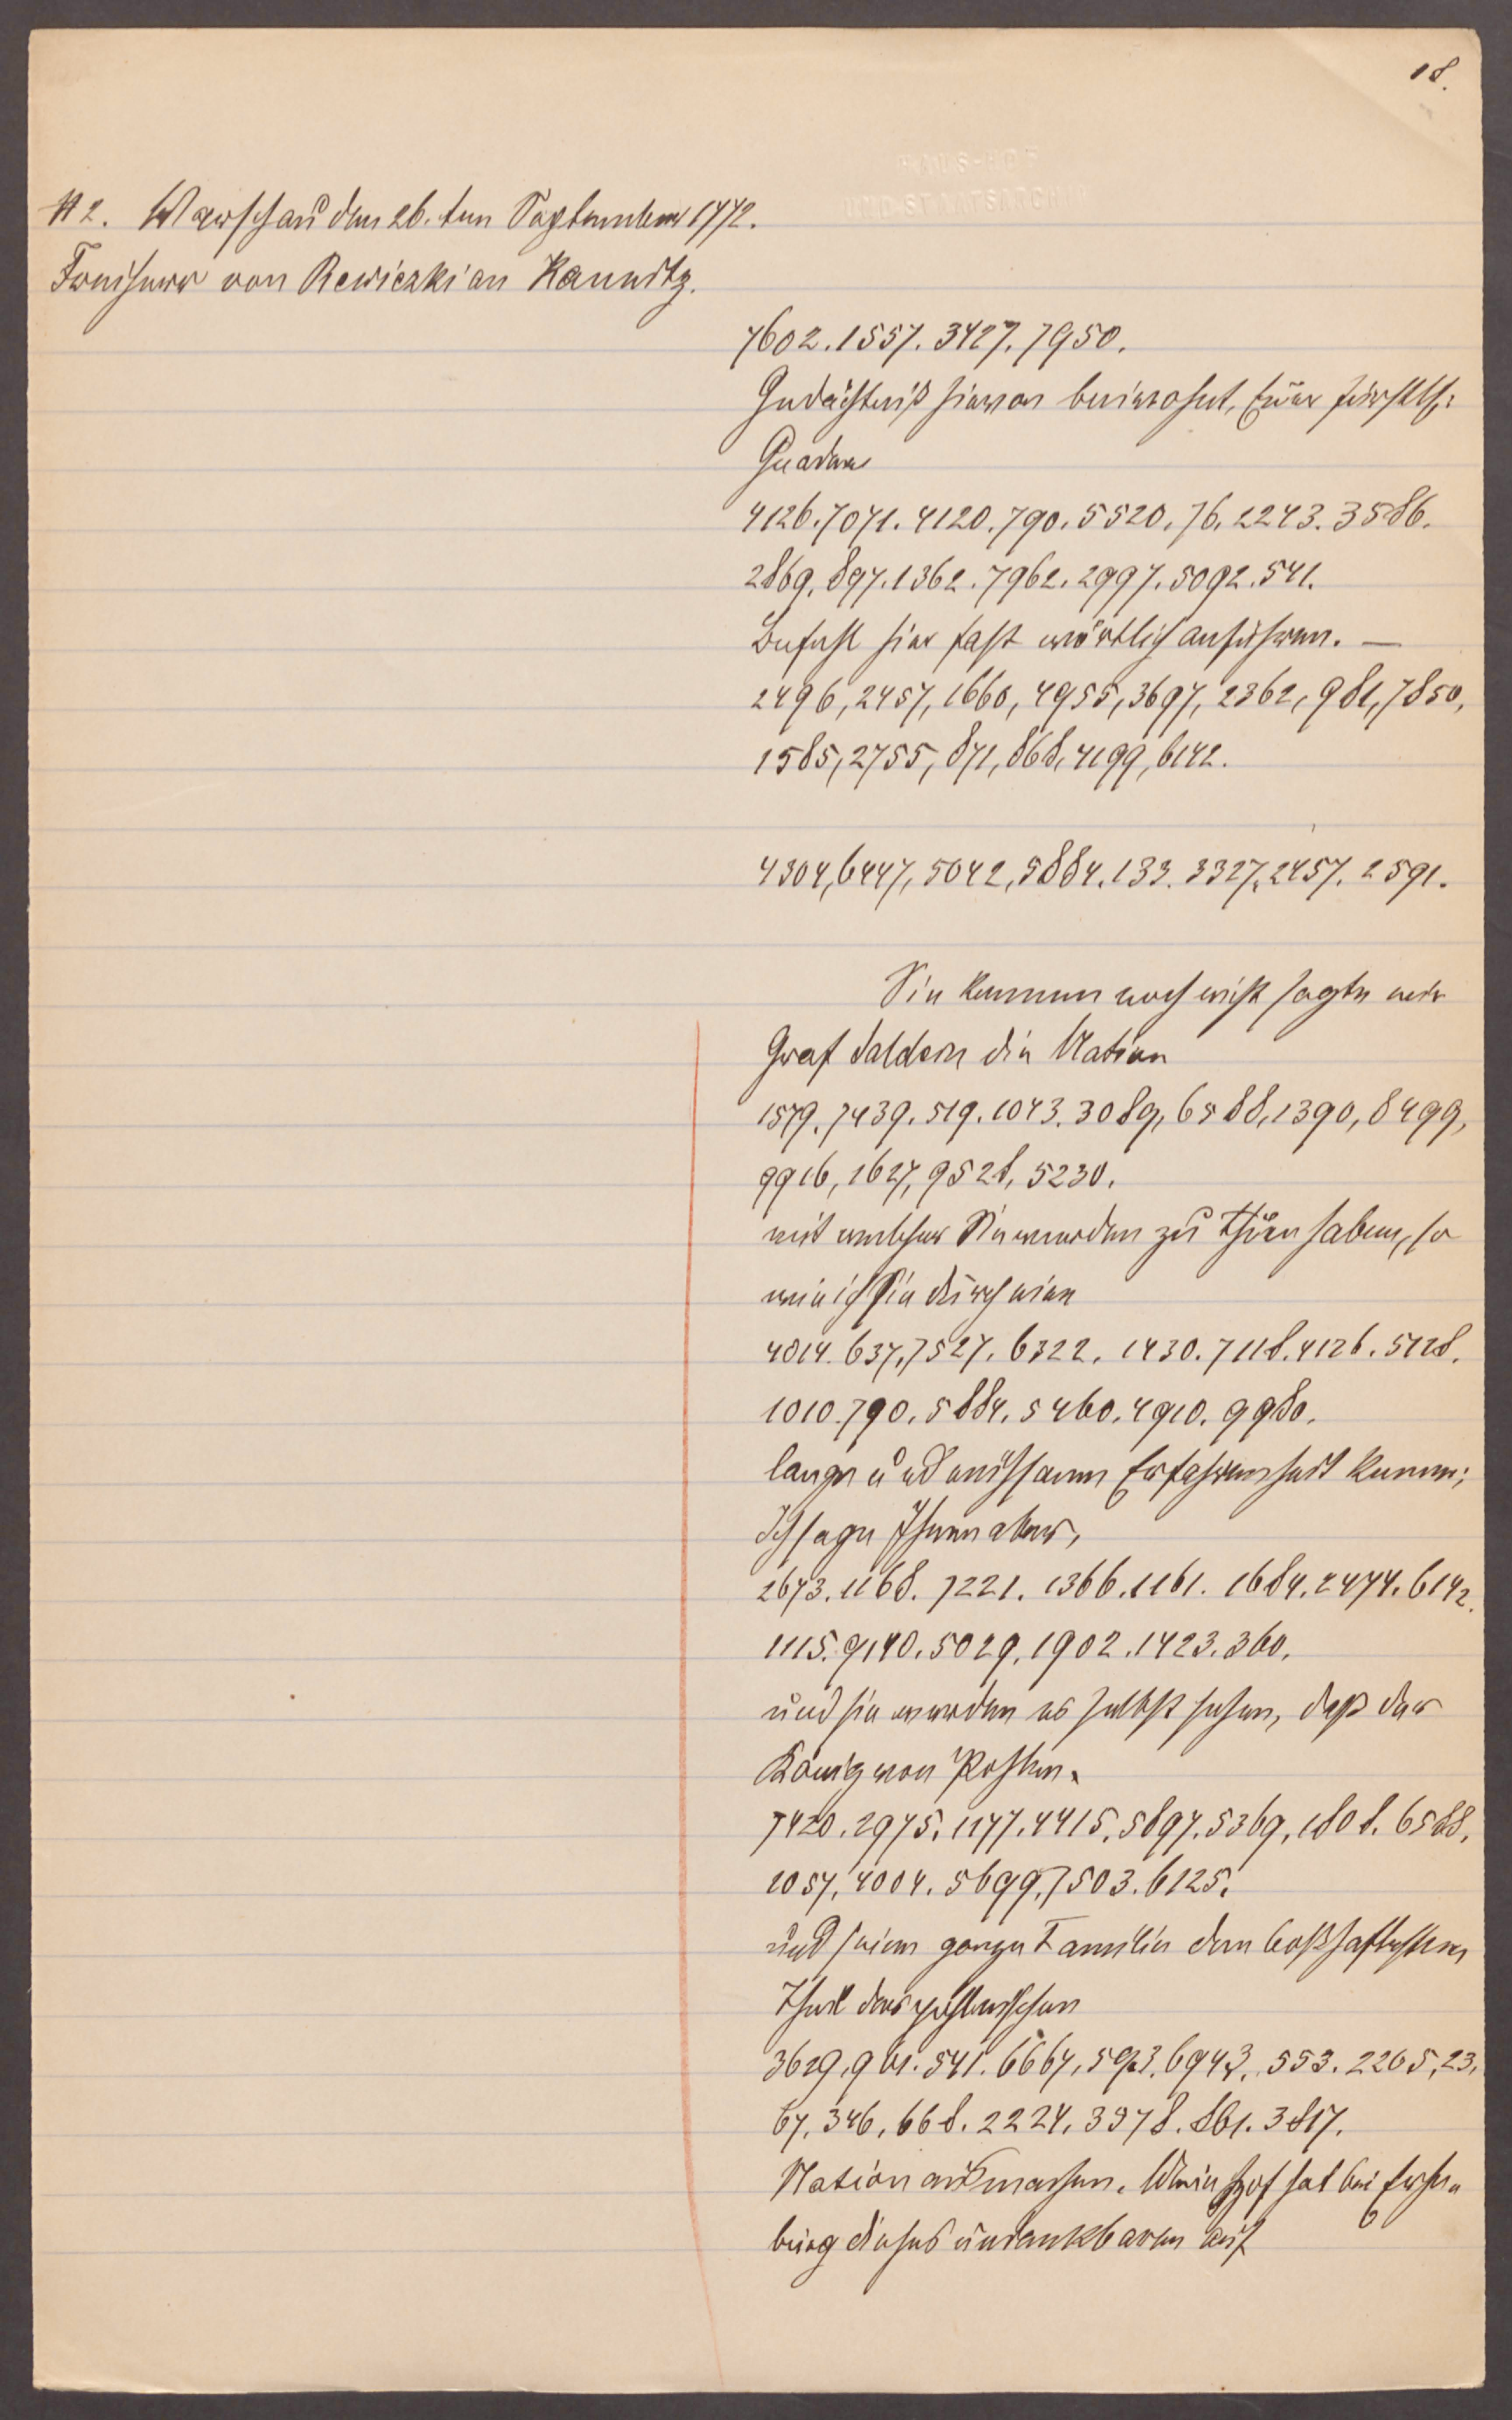 18.
HAUS- HOF
UND STAATSARCHIV
# 2. Warschau den 26.ten September 1772.
Freiherr von Rewiczki an Kaunitz.
7602.1557.3427.7950.
Gedächtniß hievon beiwohnt, Euer fürstlch:
Gnaden
4126.7071.4120.790.5520.76.2243.3586.
2869.897.1362.7962.2997.5092.541.
Befehl hier fast wörtlich anführen. —
2496,2457,1660,4955,3697,2362,981,7850,
1585,2755,871,868,4199,6142.
4304,6447,5042,5884.133.3327.2457.2591.
Sie kennen noch nicht sagte mir
Graf Saldern die Nation
1579.7439.519.1043.3089,6588,1390,8499,
9916,1627,9528,5230.
mit welcher Sie werden zu thun haben, so
wie ich sie durch eine
4014.637.7527.6322.1430.7118.4126.5728.
1010.790.5884.5460.4910.9980.
lange und mühsame Erfahrenheit kenne;
Ich sage Ihnen aber,
2673.1168.7221.1366.1161.1684.2474.6142.
1115.9140.5029.1902.1423.360.
und sie werden es selbst sehen, daß der
König von Pohlen.
7420.2975.1177.4415.5897.5369.1808.6588.
1057.4004.5699.7503.6125.
und seine ganze Familie den boßhaftesten
Theil der pohlnischen
3629.961.541.6667.593.6943.553.2205.23.
67.346.668.2224.3978.861.3817.
Nation ausmachen. Mein Hof hat bei Erhe-
bung dieses undankbaren auf